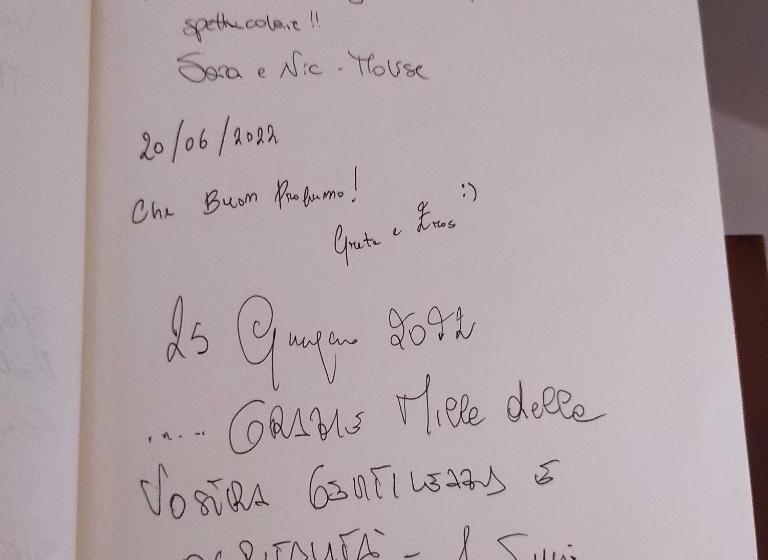 spettacolare !!
Sara e Nic - Mouse
20/06/2022
Che Buon Profumo!
Greta e Eros :)
25 Giugno 2022
..... GRAZIE Mille delle
VOSTRA GENTILEZZA E
OSPITALITÀ -